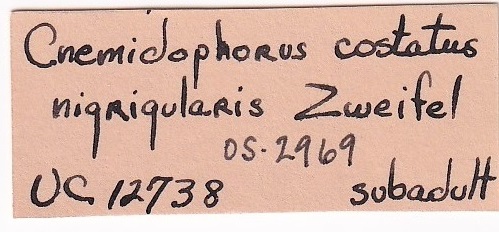 Cnemidophorus costatus
nigrigularis Zweifel
OS-2969
UC 12738 subadult